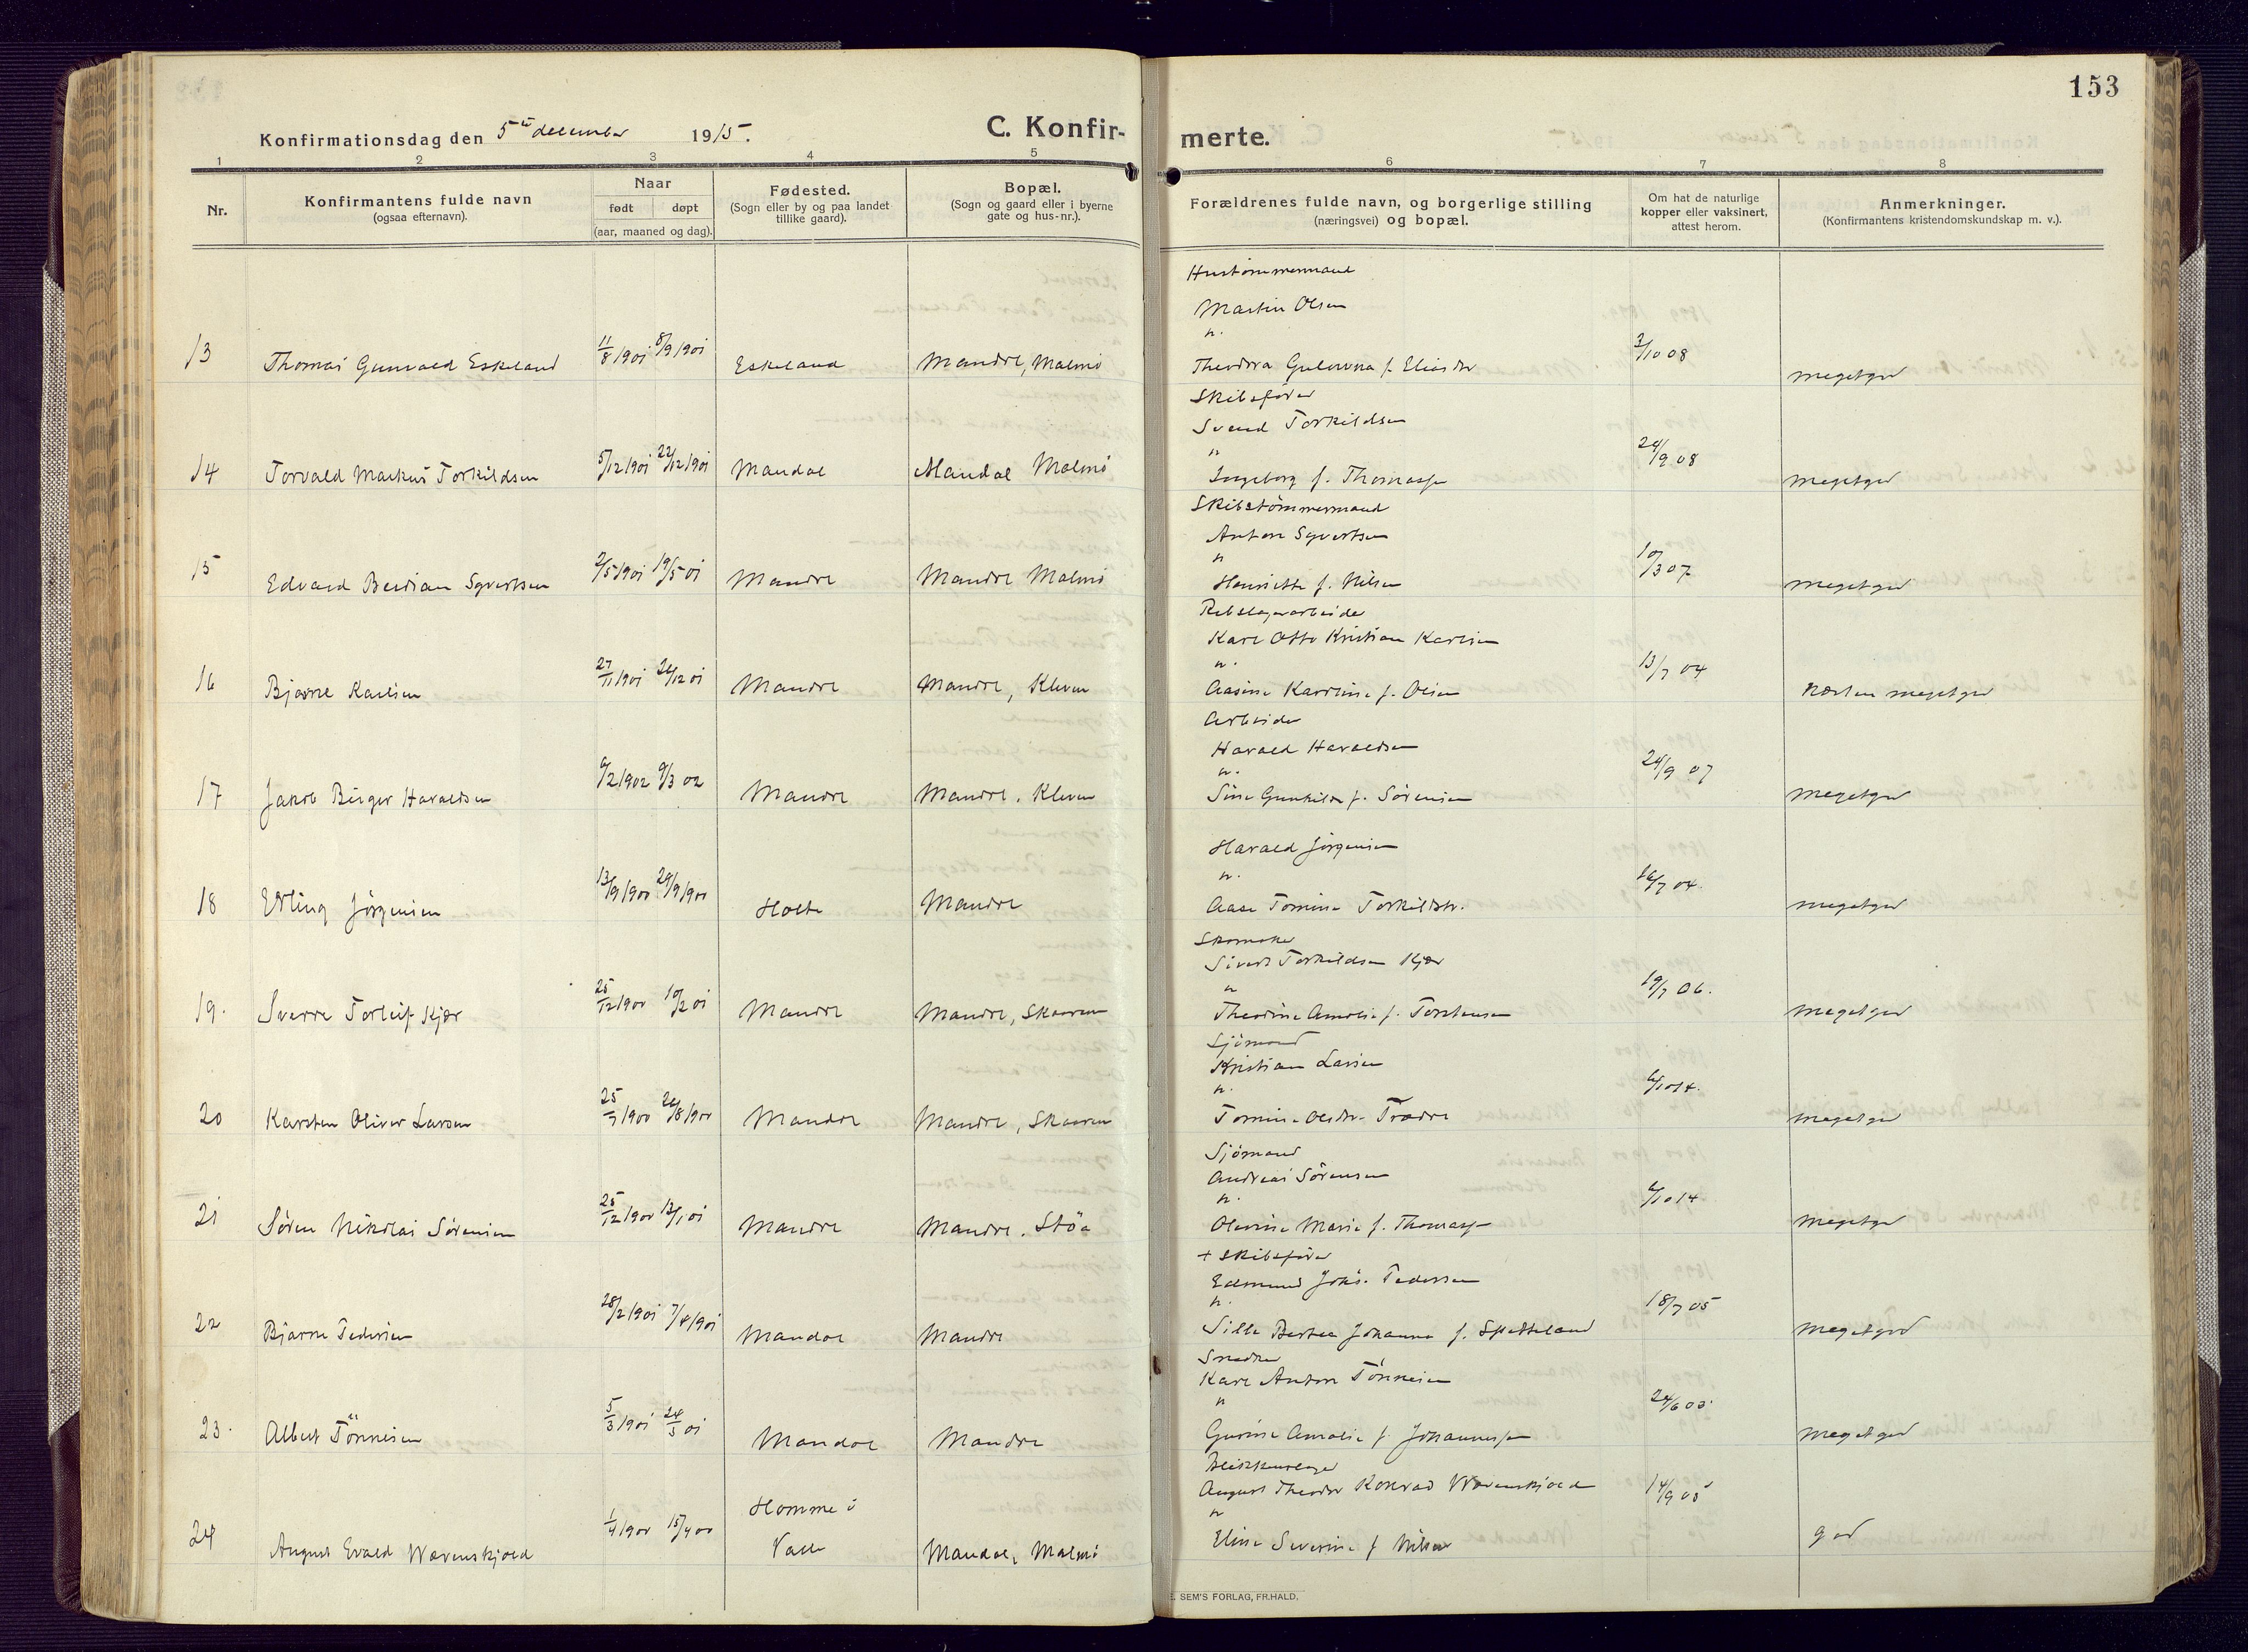 153
Konfirmationsdag den 5te december 1915.
C. Konfirmerte.
1 2 3 4 5 6 7 8
Nr.
Konfirmantens fulde navn
(ogsaa efternavn).
Naar
født døpt
(aar, maaned og dag).
Fødested.
(Sogn eller by og paa landet
tillike gaard).
Bopæl.
(Sogn og gaard eller i byerne
gate og hus-nr.).
Forældrenes fulde navn, og borgerlige stilling
(næringsvei) og bopæl.
Om hat de naturlige
kopper eller vaksinert,
attest herom.
Anmerkninger.
(Konfirmantens kristendomskundskap m. v.).
Hustømmermand
Martin Olsen
n.
13 Thomas Gunvald Eskeland 11/8 1901 8/9 1901 Eskeland Mandal, Malmö Theodora f. Eliasdtr 3/10 08 megetgod
Skibsfører
Svend Torkildsen
n
14 Torvald Markus Torkildsen 5/12 1901 22/12 1901 Mandal Mandal Malmö Ingeborg f. Thomassen 24/9 08 megetgod
Skibstømmermand
Anton Syvertsen
n
15 Edvard Berdian Syvertsen 2/5 1901 19/5 01 Mandal Mandal Malmö Henriette f. Nilsen 10/3 07 megetgod
Rebslagerarbeider
Karl Otto Kristian Karlsen
n.
16 Bjarne Karlsen 27/11 1901 26/12 01 Mandal Mandal, Kleven Aasine Karoline f. Olsen 13/7 04 Næsten megetgod
Arbeider
Harald Haraldsen
n.
17 Jakob Birger Haraldsen 6/2 1902 9/3 02 Mandal Mandal. Kleven Sine Gunhilde f. Sørensen 24/9 07 megetgod
Harald Jörgensen
n.
18 Erling Jörgensen 13/9 1900 29/9 1900 Holte Mandal Aase Tomine Torkildstr. 16/7 04. megetgod
Skomaker
Sivert Torkildsen Kjær
n
19. Sverre Torleif Kjær 25/12 1900 10/2 01 Mandal Mandal, Skaaren Theodine Amalie f. Torstensen 19/7 06. megetgod
Sjömand
Kristian Larsen
n.
20 Karsten Oliver Larsen 25/7 1900 26/8 1900 Mandal Mandal, Skaaren Tomine Olsdtr. 6/10 14. megetgod
Sjömand
Andreas Sörensen
n.
21 Søren Nikolai Sørensen 25/12 1900 13/1 01 Mandal Mandal. Stöa Olevine Marie f. Thomassen 6/10 14 megetgod
+ Skibsfører
Edmund Johs. Pedersen
n.
22 Bjarne Pedersen 28/2 1901 7/4 1901 Mandal Mandal Sille Bertea Johanne f. Spetteland 18/7 05 megetgod
Snedker
Karl Anton Tönnesen
n
23. Albert Tönnesen 5/3 1901 24/5 01 Mandal Mandal Gurine Amalie f. Johannessen megetgod
Blikkenslager
August Theodor Konrad Wævenskjold
n
24 August Evald Wævenskjold 1/4 1900 15/4 00 Homme i
Valle Mandal, Malmö Eline Severine f Nilsen god
E. SEM'S FORLAG, FR.HALD.